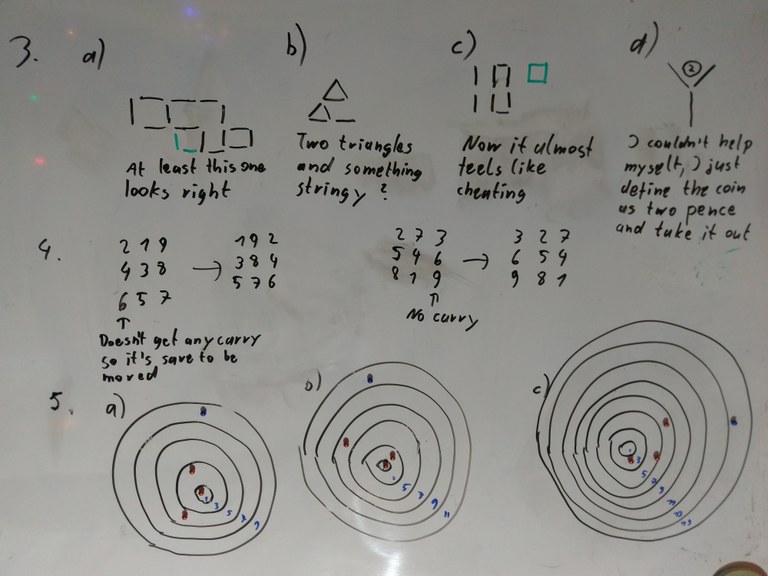 3. a) b) c) d)
2
At least this one
looks right
Two triangles
and something
stringy?
Now it almost
feels like
cheating
I couldn't help
myself, I just
define the coin
as two pence
and take it out
4.
2 1 9 → 1 9 2
4 3 8 3 8 4
6 5 7 5 7 6
↑
Doesn't get any carry
so it's save to be
moved
2 7 3 → 3 2 7
5 4 6 6 5 4
8 1 9 9 8 1
↑
No carry
5. a) b) c)